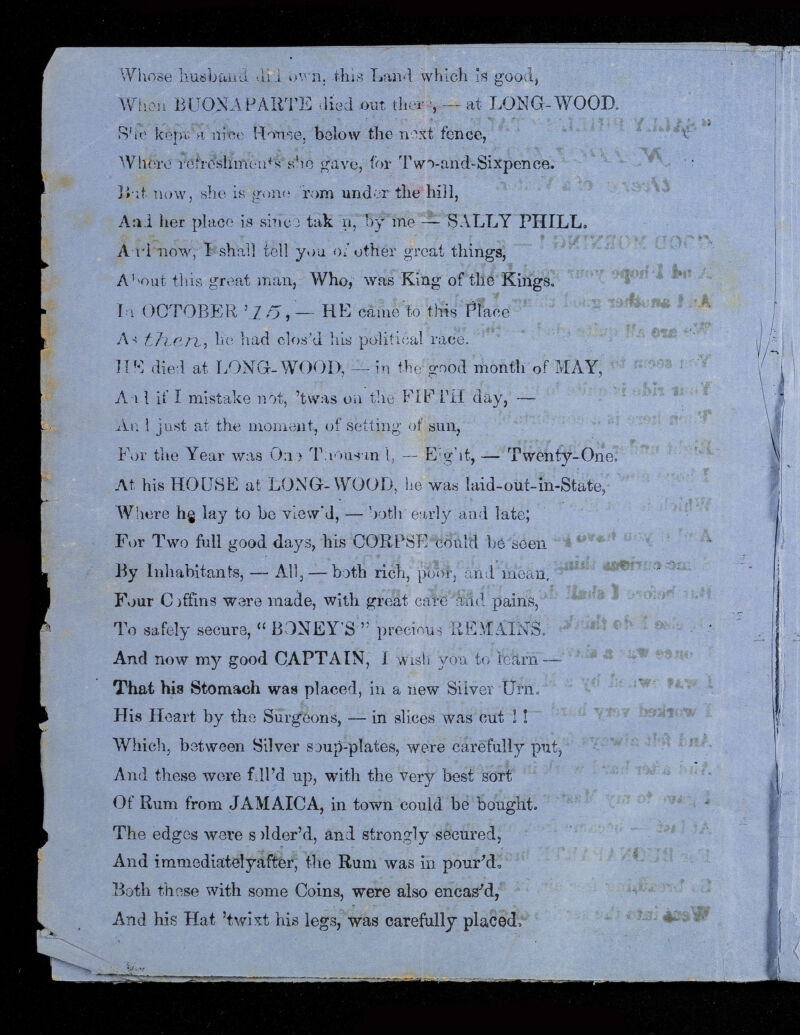 Whose husband did own, this Land which is good,
When BUONAPARTE died out there, — at LONG-WOOD.
She kept a nice House, below the next fence,
Where refreshments she gave, for Two-and-Sixpence.
But now, she is gone from under the hill,
And her place is since taken, by me — SALLY PHILL.
And now, I shall tell you of other great things,
About this great man, Who, was King of the Kings.
In OCTOBER '15, — HE came to this Place
As then, he had clos'd his political race.
HE died at LONG-WOOD, — in the good month of MAY,
And if I mistake not, 'twas on the FIFTH day, —
And just at the moment, of setting of sun,
For the Year was One Thousand, — Eight, — Twenty-One.
At his HOUSE at LONG-WOOD, he was laid-out-in-State,
Where he lay to be view'd, — both early and late;
For Two full good days, his CORPSE could be seen
By Inhabitants, — All, — both rich, poor, and mean,
Four Coffins were made, with great care and pains,
To safely secure, “BONEY'S” precious REMAINS.
And now my good CAPTAIN, I wish you to learn —
That his Stomach was placed, in a new Silver Urn.
His Heart by the Surgeons, — in slices was cut !!
Which, between Silver soup-plates, were carefully put,
And these were fill'd up, with the very best sort
Of Rum from JAMAICA, in town could be bought.
The edges were solder'd, and strongly secured,
And immediatelyafter, the Rum was in pour'd.
Both these with some Coins, were also encas'd,
And his Hat 'twixt his legs, was carefully placed.